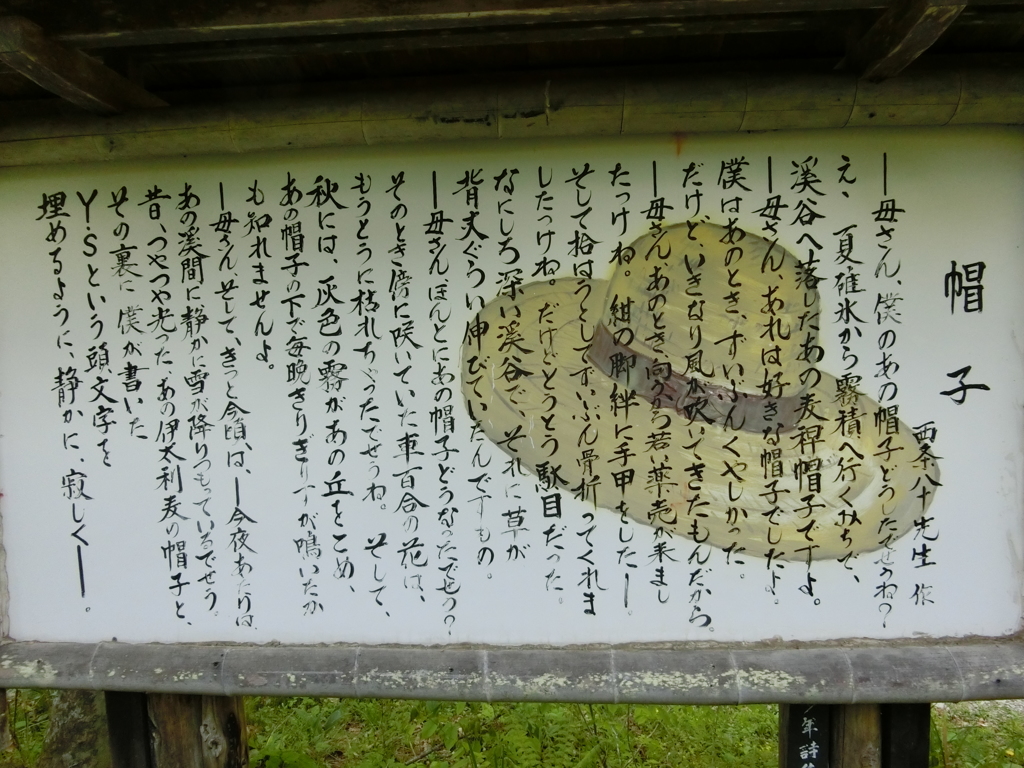 帽子
西条八十先生 作
―母さん、僕のあの帽子どうしたでせうね？
え、夏碓氷から霧積へ行くみちで、
渓谷へ落したあの麦稈帽子ですよ。
―母さん、あれは好きな帽子でしたよ。
僕はあのとき、ずいぶんくやしかった。
だけど、いきなり風が吹いてきたもんだから。
―母さん、あのとき向ふから若い薬売が来まし
たっけね。紺の脚絆に手甲をした―。
そして拾はうとしてずいぶん骨折ってくれま
したっけね。だけどとうとう駄目だった。
なにしろ深い渓谷で、それに草が
背丈ぐらい伸びていたんですもの。
―母さんほんとにあの帽子どうなったでせう？
そのとき傍に咲いていた車百合の花は、
もうとうに枯れちゃったでせうね。そして、
秋には、灰色の霧があの丘をこめ、
あの帽子の下で毎晩きりぎりすが鳴いたか
も知れませんよ。
―母さん、そして、きっと今頃は、―今夜あたりは、
あの渓間に静かに雪が降りつもっているでせう。
昔、つやつや光った、あの伊太利麦の帽子と、
その裏に僕が書いた
Y・Sという頭文字を
埋めるように、静かに、寂しく―。
年詩